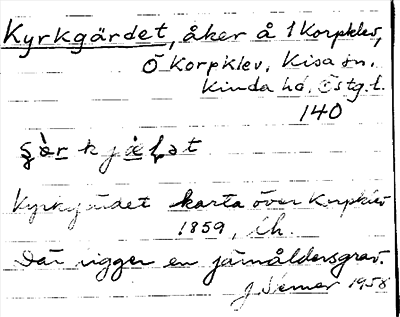 Kyrkgärdet, åker å 1 Korpklev,
Ö Korpklev, Kisa sn,
Kinda hd, Östg.l.
140
Kyrkgärdet karta över Korpklev
1859, ch.
Där ligger en järnåldersgrav.
1958